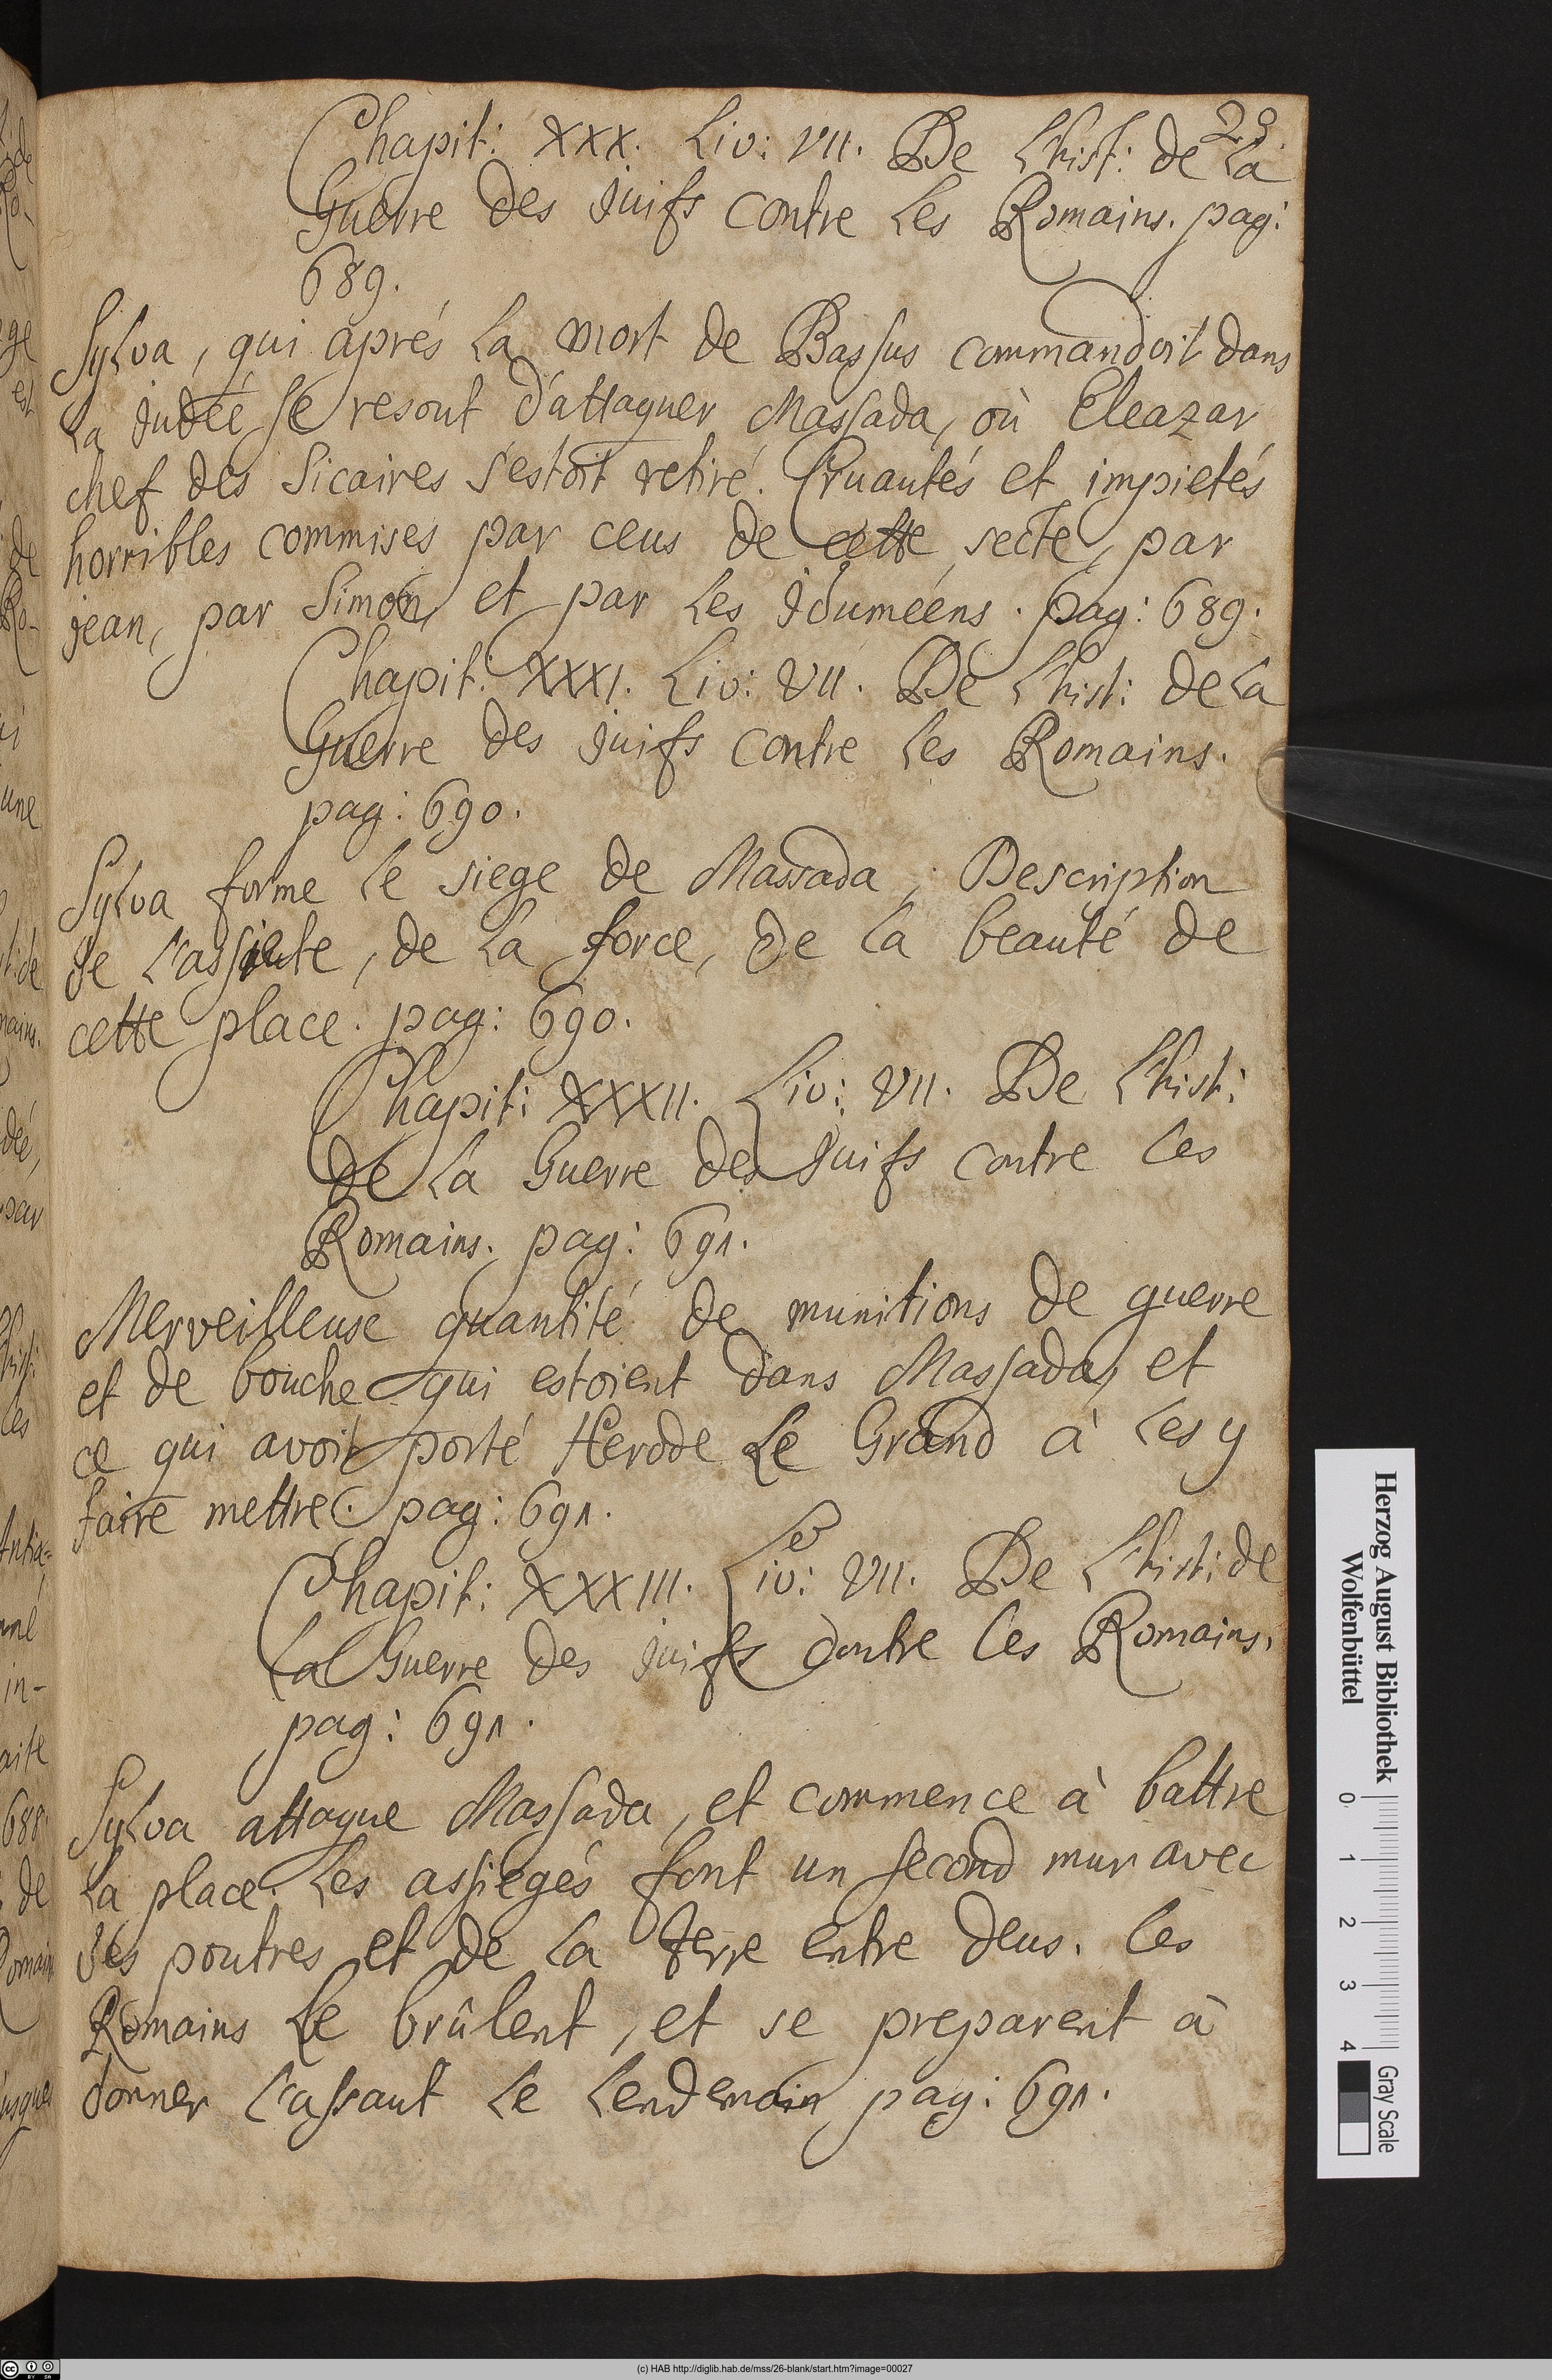 23.
Chapit: XXX. Liv: VII. De L'hist: de La
Guerre des juifs contre Les Romains. pag:
689.
Sylva, qui aprés La mort de Bassus commandoit dans
La judeé se resout d'attaquer Massada, où Eleazar
chef des Sicaires s'estoit retiré. Cruautés et impietés
horribles commises par ceus de cette secte, par
jean, par Simon, et par Les Iduméens. pag: 689.
Chapit: XXXI. Liv: VII. De L'hist: de La
Guerre des juifs contre Les Romains.
pag: 690.
Sylva forme Le siege de Massada, Description
de L'assiete, de La force, de La beauté de
cette place. pag: 690.
Chapit: XXXII. Liv: VII. De L'hist:
de La Guerre des juifs contre Les
Romains. pag: 691.
Merveilleuse quantité de munitions de guerre
et de bouche qui estoient dans Massada, et
ce qui avoit porté Herode Le Grand à Les y
faire mettre. pag: 691.
Chapit: XXXIII. Liv: VII. De L'hist: de
La Guerre des juifs contre Les Romains.
pag: 691.
Sylva attaque Massada, et commence à battre
La place. Les assiegés font un second mur avec
des poutres et de La terre entre deus. Les
Romains Le brûlent, et se preparent à
donner L'assaut Le Lendemain pag: 691.
Herzog August Bibliothek
Wolfenbüttel
0 1 2 3 4
Gray Scale
(c) HAB http://diglib.hab.de/mss/26-blank/start.htm?image=00027